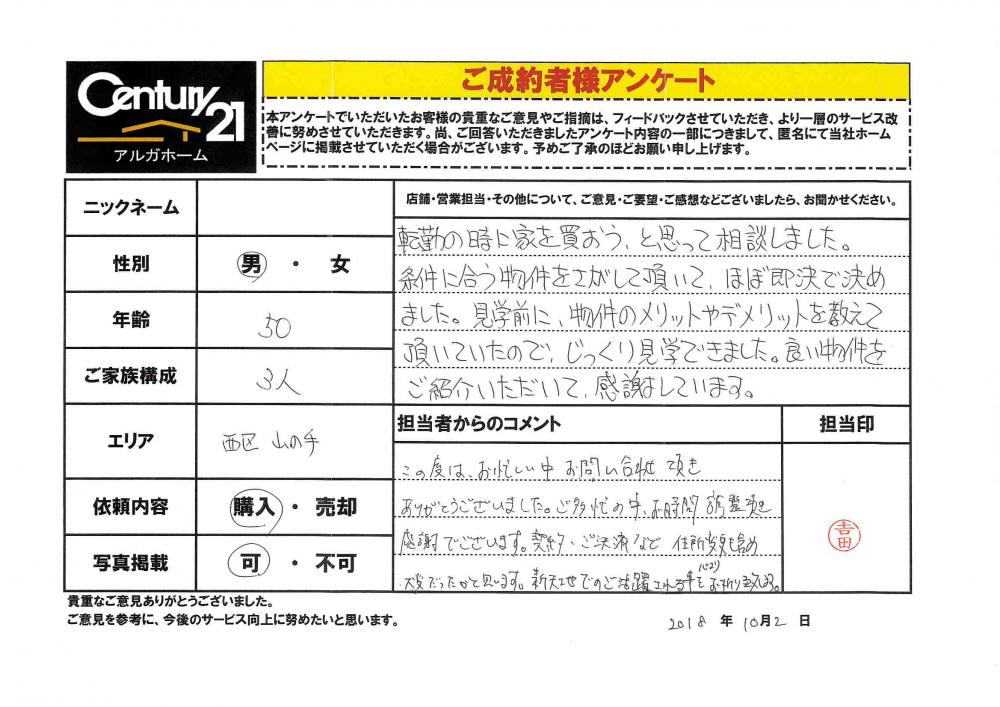 Century 21
アルガホーム
ご成約者様アンケート
本アンケートでいただいたお客様の貴重なご意見やご指摘は、フィードバックさせていただき、より一層のサービス改
善に努めさせていただきます。尚、ご回答いただきましたアンケート内容の一部につきまして、匿名にて当社ホーム
ページに掲載させていただく場合がございます。予めご了承のほどお願い申し上げます。
ニックネーム
性別 男 ・ 女
年齢 50
ご家族構成 3人
エリア 西区 山の手
依頼内容 購入 ・ 売却
写真掲載 可 ・ 不可
店舗・営業担当・その他について、ご意見・ご要望・ご感想などございましたら、お聞かせください。
転勤の時に家を買おう、と思って相談しました。
条件に合う物件をさがして頂いて、ほぼ即決で決め
ました。見学前に、物件のメリットやデメリットを教えて
頂いていたので、じっくり見学できました。良い物件を
ご紹介いただいて、感謝しています。
担当者からのコメント
この度は、お忙しい中お問い合わせ頂き
ありがとうございました。ご多忙の中、お時間調整頂き
感謝でございます。契約・ご決済など 住所変更含め
大変だったかと思います。新天地でのご活躍される事を心よりお祈り致します。
担当印
吉田
貴重なご意見ありがとうございました。
ご意見を参考に、今後のサービス向上に努めたいと思います。
2018 年 10月2 日